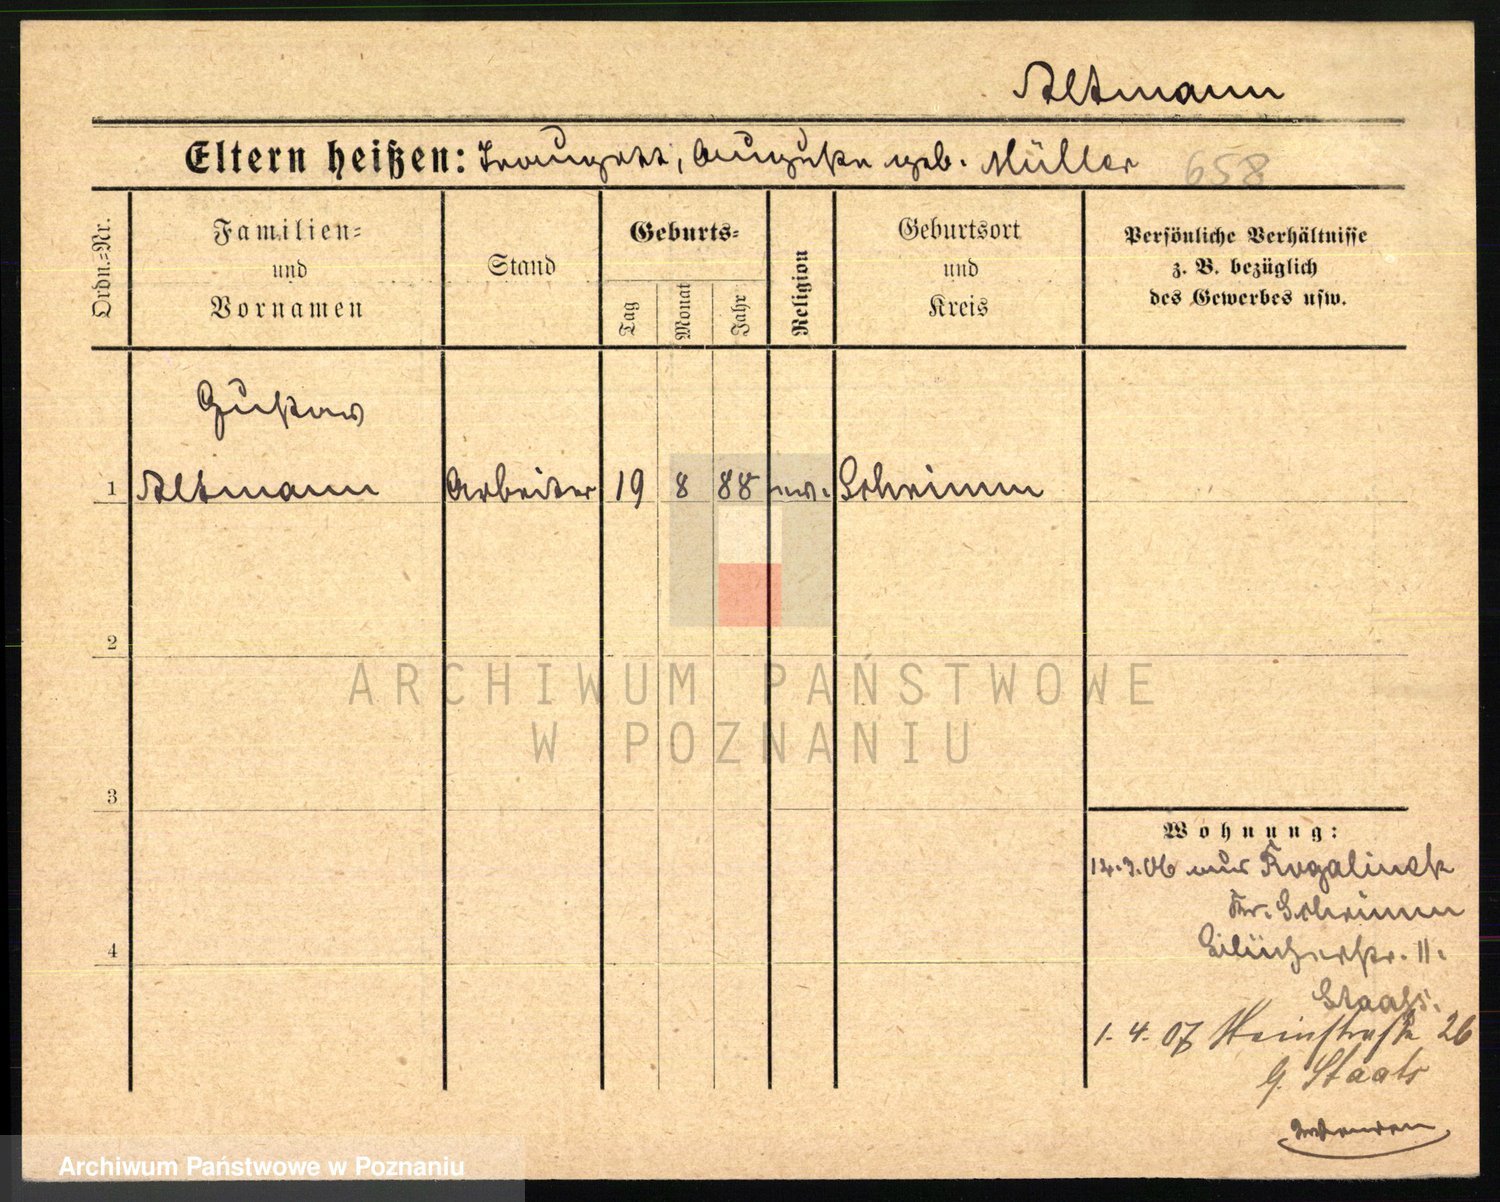 Altmann
Eltern heißen: Traugott, Auguste geb. Müller 658
Ordn.-Nr.
Familien-
und
Vornamen
Stand
Geburts-
Tag
Monat
Jahr
Religion
Geburtsort
und
Kreis
Persönliche Verhältnisse
z. B. bezüglich
des Gewerbes usw.
Gustav
1 Altmann Arbeiter 19 8 88 ev. Schrimm
2
3
4
ARCHIWUM PAŃSTWOWE
W POZNANIU
Wohnung:
14.3.06 aus Rogalinek
Kr. Schrimm
11.
Staats.
1.4.07 26
G. Staats
wenden
Archiwum Państwowe w Poznaniu